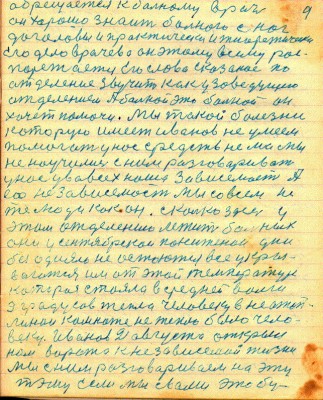 обрещается к балному врач
9
он хорошо знаит болного с ног
до головы и практически и теоретически
Его дело врачево он этому всему рас-
порежается Его слово сказаное по
отделению Звучит как у Зоведующего
отделением А балной это болной он
хочет помочи. Мы такой болезни
которую имеет иванов не умеем
помогат у нас средств не ма мы
не научилис с ним разговариват
у нас у всех наша Зависемост А
его не Зависемост мы совсем не
те люди как он. сколко здес у
этом отделению лежит болных
они у сентябрской покиненой дни
бы одного не остаются все укры-
ваются им от этой температури
которая стояла в средней волги
3 градусов тепла Человеку в неотоп-
линой комнате не тепло было чело-
веку. Иванов 21 августа открыли
ном ворота к независемой жизни
мы с ним разговариваем на эту
тэму если мы с вами это бу-